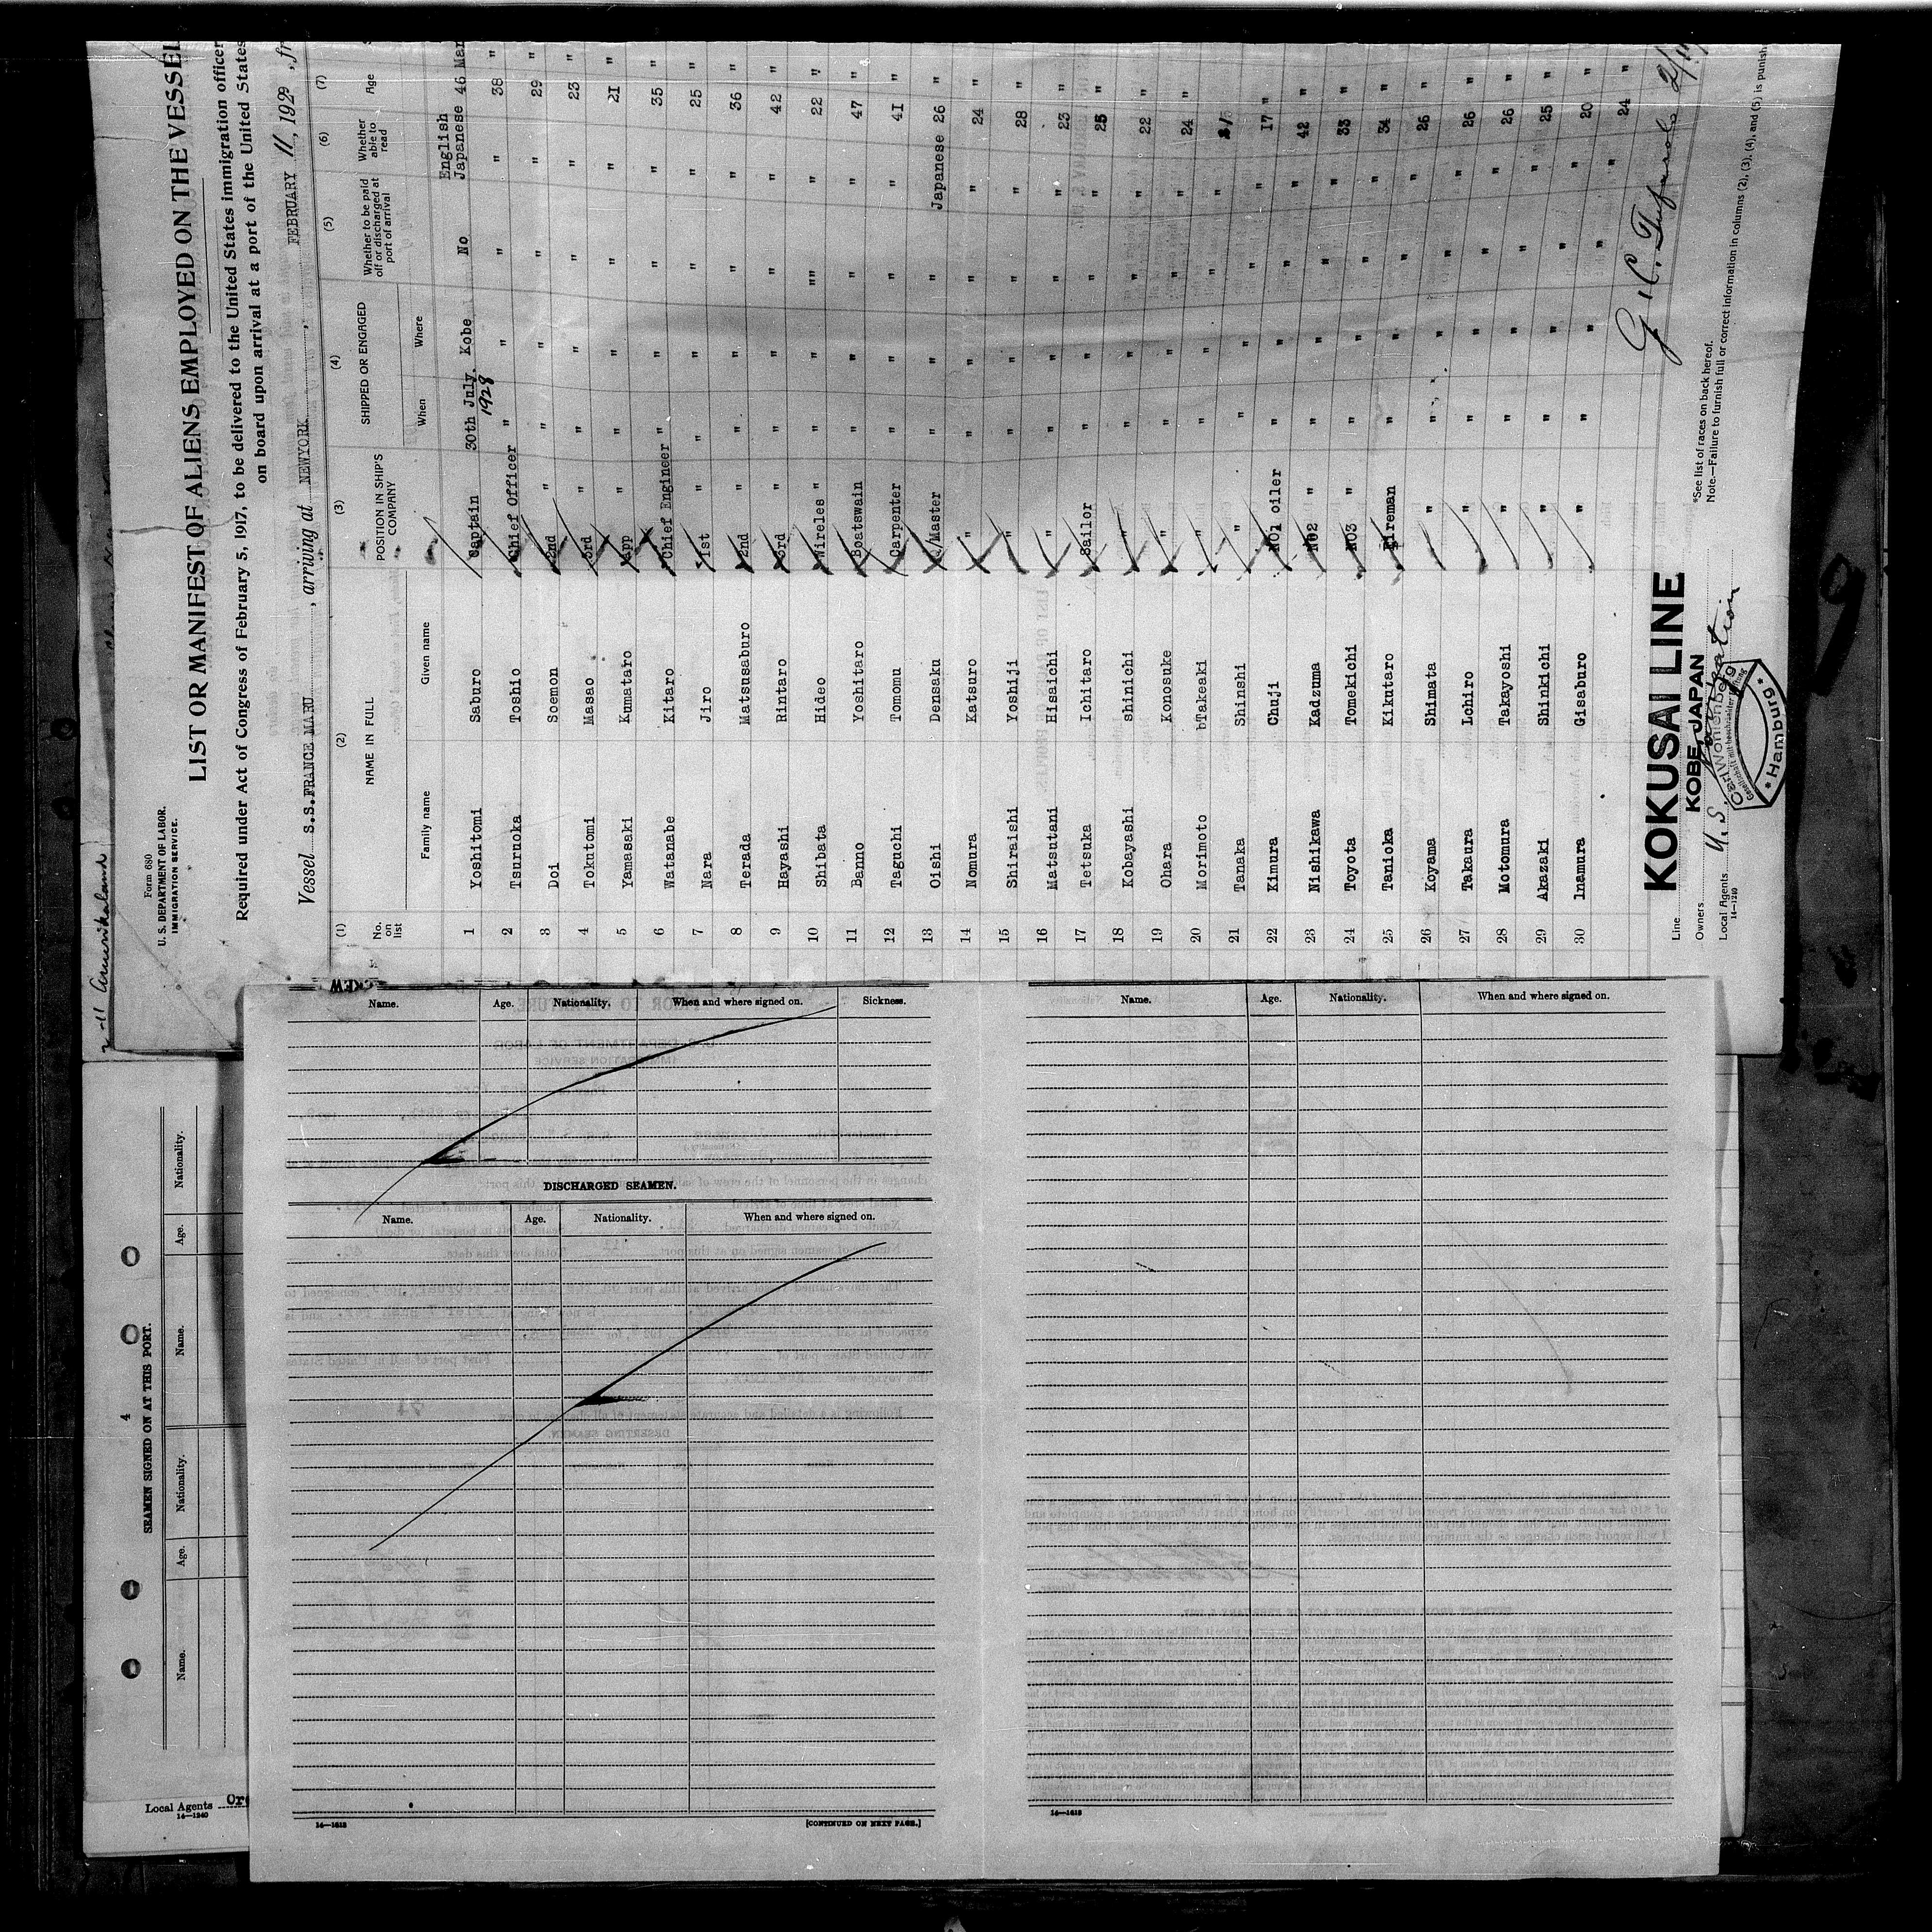 Form 680
U. S. DEPARTMENT OF LABOR
IMMIGRATION SERVICE.
LIST OR MANIFEST OF ALIENS EMPLOYED ON THE VESSEL
Required under Act of Congress of February 5, 1917, to be delivered to the United States immigration officer
on board upon arrival at a port of the United States
Vessel S.S.FRANCE MARU, arriving at NEWYORK, FEBRUARY 11, 1929, fr
(1) (2) (3) (4) (5) (6) (7)
No. on list NAME IN FULL POSITION IN SHIP'S COMPANY SHIPPED OR ENGAGED Whether to be paid off or discharged at port of arrival Whether able to read Age
Family name Given name When Where
1 Yoshitomi Saburo Captain 30th July. 1928 Kobe No English Japanese 46 Mar
2 Tsuruoka Toshio Chief Officer " " " " 38 "
3 Doi Soemon 2nd " " " " " 29 "
4 Tokutomi Masao 3rd " " " " " 23 "
5 Yamasaki Kumataro App " " " " " 21 "
6 Watanabe Kitaro Chief Engineer " " " " 35 "
7 Nara Jiro 1st " " " " " 25 "
8 Terada Matsusaburo 2nd " " " " " 36 "
9 Hayashi Rintaro 3rd " " " " " 42 "
10 Shibata Hideo Wireles " " " "" " 22 "
11 Banno Yoshitaro Boatswain " " " " 47 "
12 Taguchi Tomomu Carpenter " " " " 41 "
13 Oishi Densaku Q/Master " " " Japanese 26 "
14 Nomura Katsuro " " " " " 24 "
15 Shiraishi Yoshiji " " " " " 28 "
16 Matsutani Hisaichi " " " " " 23 "
17 Tetsuka Ichitaro Sailor " " " " 25 "
18 Kobayashi shinichi " " " " " 22 "
19 Ohara Konosuke " " " " " 24 "
20 Morimoto bTakeaki " " " " "
21 Tanaka Shinshi " " " " " 17 "
22 Kimura Chuji NO1 oiler " " " " 42 "
23 Nishikawa Kadzuma NO2 " " " " " 33 "
24 Toyota Tomekichi NO3 " " " " " 34 "
25 Tanioka Kikutaro Fireman " " " " 26 "
26 Koyama Shimata " " " " " 26 "
27 Takaura Lchiro " " " " " 26 "
28 Motomura Takayoshi " " " " " 25 "
29 Akazaki Shinkichi " " " " " 20 "
30 lnamura Gisaburo " " " " " 24 "
Line KOKUSAI LINE
Owners KOBE, JAPAN
Local Agents U.S.
14—1240
Carl Wohlenberg
Gesellschaft mit beschränkter Haftung
* Hamburg *
*See list of races on back hereof.
Note—Failure to furnish full or correct information in columns (2), (3), (4), and (5) is punish
CREW
Name. Age. Nationality. When and where signed on. Sickness.
DISCHARGED SEAMEN.
Name. Age. Nationality. When and where signed on.
14—1618
[CONTINUED ON NEXT PAGE.]
Name. Age. Nationality. When and where signed on.
14—1618
4
SEAMEN SIGNED ON AT THIS PORT.
Name. Age. Nationality. Name. Age. Nationality.
Local Agents
14—1240